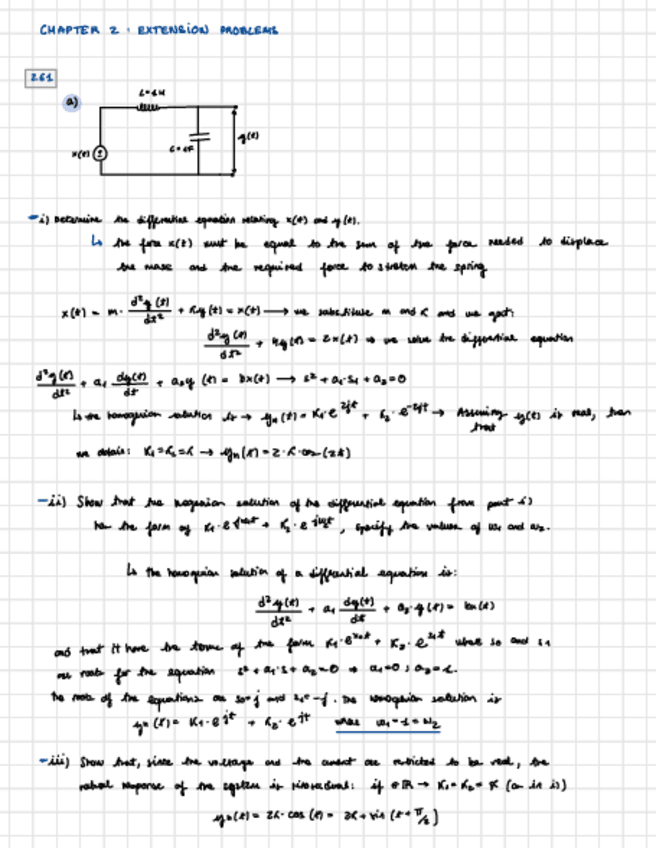 CHAPTER 2 : EXTENSION PROBLEMS
2.61
a)
L=1H
x(t)
C=1F
y(t)
i) Determine the differential equation relating x(t) and y(t).
↳ the force x(t) must be equal to the sum of the force needed to displace
the mass and the required force to stretch the spring
x(t) = m · d²y(t)/dt² + Ky(t) = x(t) → we substitute m and K and we get:
d²y(t)/dt² + 4y(t) = 2x(t) ⇒ we solve the differential equation
d²y(t)/dt² + a₁ dy(t)/dt + a₂y(t) = bx(t) → s² + a₁·s + a₂ = 0
↳ the solution is → yₕ(t) = K₁·e^2jt + K₂·e^-2jt → Assuming y(t) is real, then
that
we obtain: K₁=K₂=K → yₕ(t) = 2·K·cos(2t)
-ii) Show that the solution of the differential equation from part i)
has the form of K₁·e^jω₁t + K₂·e^jω₂t, specify the values of ω₁ and ω₂.
↳ the solution of a differential equation is:
d²y(t)/dt² + a₁ dy(t)/dt + a₂·y(t) = bx(t)
and that it have the of the form K₁·e^s₀t + K₂·e^s₁t where s₀ and s₁
are roots for the equation s² + a₁·s + a₂ = 0 ⇒ a₁=0; a₂=1.
the roots of the equations are s₀=j and s₁=-j. The solution is
yₕ(t) = K₁·e^jt + K₂·e^jt where ω₁=1=ω₂
-iii) Show that, since the voltage and the current are restricted to be real, the
natural response of the system is sinusoidal: if → K₁=K₂=K (as in i))
yₕ(t) = 2K·cos(t) = 2K·sin(t+π/2)